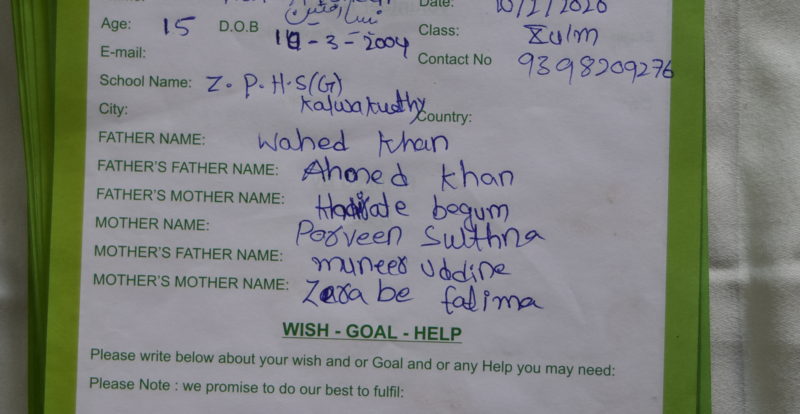 Date: 10/1/2020
Age: 15 D.O.B 19-3-2004 Class: X
E-mail: Contact No 9398209276
School Name: Z.P.H.S(G)
City: Kalwakurthy Country:
FATHER NAME: Wahed khan
FATHER'S FATHER NAME: Ahmed khan
FATHER'S MOTHER NAME: begum
MOTHER NAME: Parveen Sulthna
MOTHER'S FATHER NAME: muneer uddine
MOTHER'S MOTHER NAME: Zara be fatima
WISH - GOAL - HELP
Please write below about your wish and or Goal and or any Help you may need:
Please Note : we promise to do our best to fulfil: